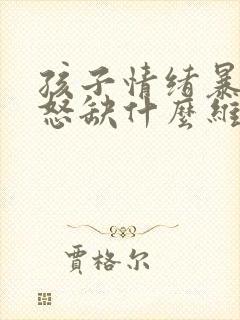 孩子情绪暴
怒缺什麼維
賈格尔